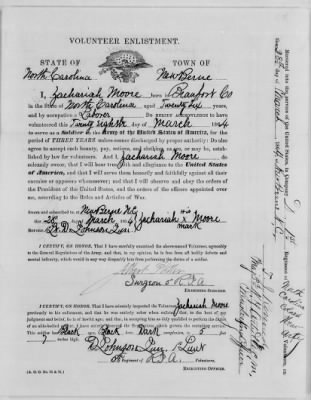 VOLUNTEER ENLISTMENT.
STATE OF TOWN OF
North Carolina New Berne
I, Zachariah Moore born in Beaufort Co
in the State of North Carolina aged Twenty Six years,
and by occupation a Laborer Do HEREBY ACKNOWLEDGE to have
volunteered this Twenty eighth day of March 1864
to serve as a Soldier in the Army of the United States of America, for the
period of THREE YEARS unless sooner discharged by proper authority: Do also
agree to accept such bounty, pay, rations, and clothing, as are, or may be, estab-
lished by law for volunteers. And I Zachariah Moore do
solemnly swear, that I will bear true faith and allegiance to the United States
of America, and that I will serve them honestly and faithfully against all their
enemies or opposers whomsoever; and that I will observe and obey the orders of
the President of the United States, and the orders of the officers appointed over
me, according to the Rules and Articles of War.
Sworn and subscribed to at New Berne N.C.
this 28 day of March 1864 Zachariah his x mark Moore
I CERTIFY, ON HONOR, That I have carefully examined the above-named Volunteer, agreeably
to the General Regulations of the Army, and that, in my opinion, he is free from all bodily defects and
mental infirmity, which would in any way disqualify him from performing the duties of a soldier.
Surgeon
EXAMINING SURGEON.
I CERTIFY, ON HONOR, That I have minutely inspected the Volunteer Zachariah Moore
previously to his enlistment, and that he was entirely sober when enlisted; that, to the best of my
judgment and belief, he is of lawful age; and that, in accepting him as duly qualified to perform the duties
of an able-bodied soldier, I have strictly observed the Regulations which govern the recruiting service.
This soldier has Black eyes, Black hair, Dark complexion, is 5 feet
7 inches high.
Regiment of Volunteers,
RECRUITING OFFICER.
Mustered into the service of the United States, in Company D
28th day of March 1864, at New Berne N.C.
Regiment of